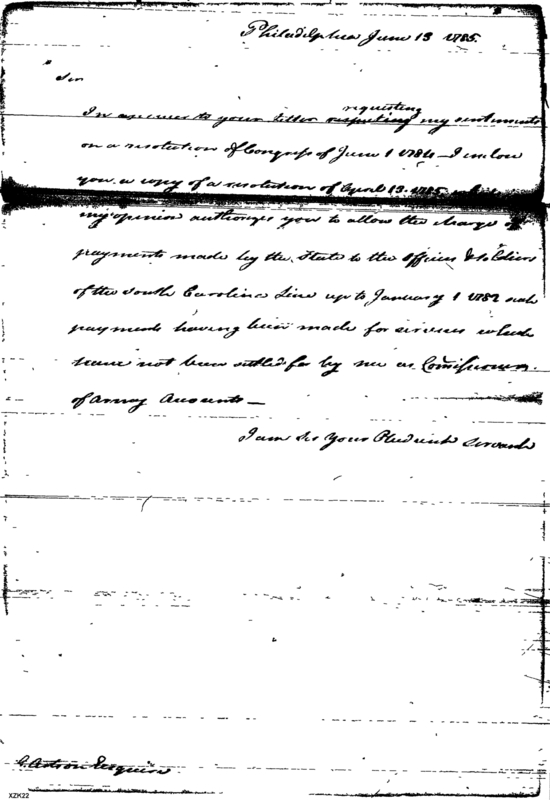 Philadelphia June 13 1785.
Sir
requesting
In answer to your letter respecting my sentiments
on a resolution of Congress of June 1 1784 – I inclose
you a copy of a resolution of April 13. 1785
my opinion authorizes you to allow the charge of
payments made by the State to the Officers & Soldiers
of the South Carolina Line up to January 1 1782 such
payments having been made for services which
have not been settled for by me as Comissioner
of Army Accounts –
I am Sir Your Obedient Servant
XZK22